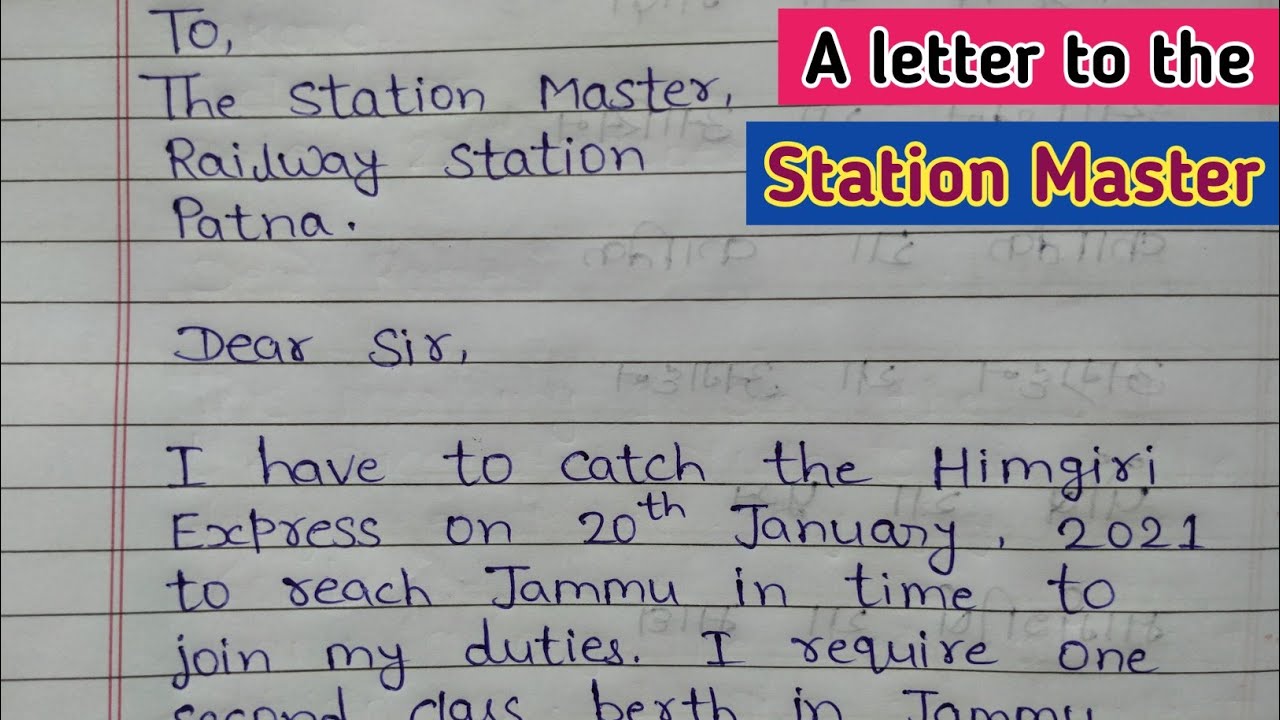 To,
The Station Master,
Railway Station
Patna.
A letter to the
Station Master
Dear Sir,
I have to catch the Himgiri
Express on 20th January, 2021
to reach Jammu in time to
join my duties. I require one
second class berth in Jammu